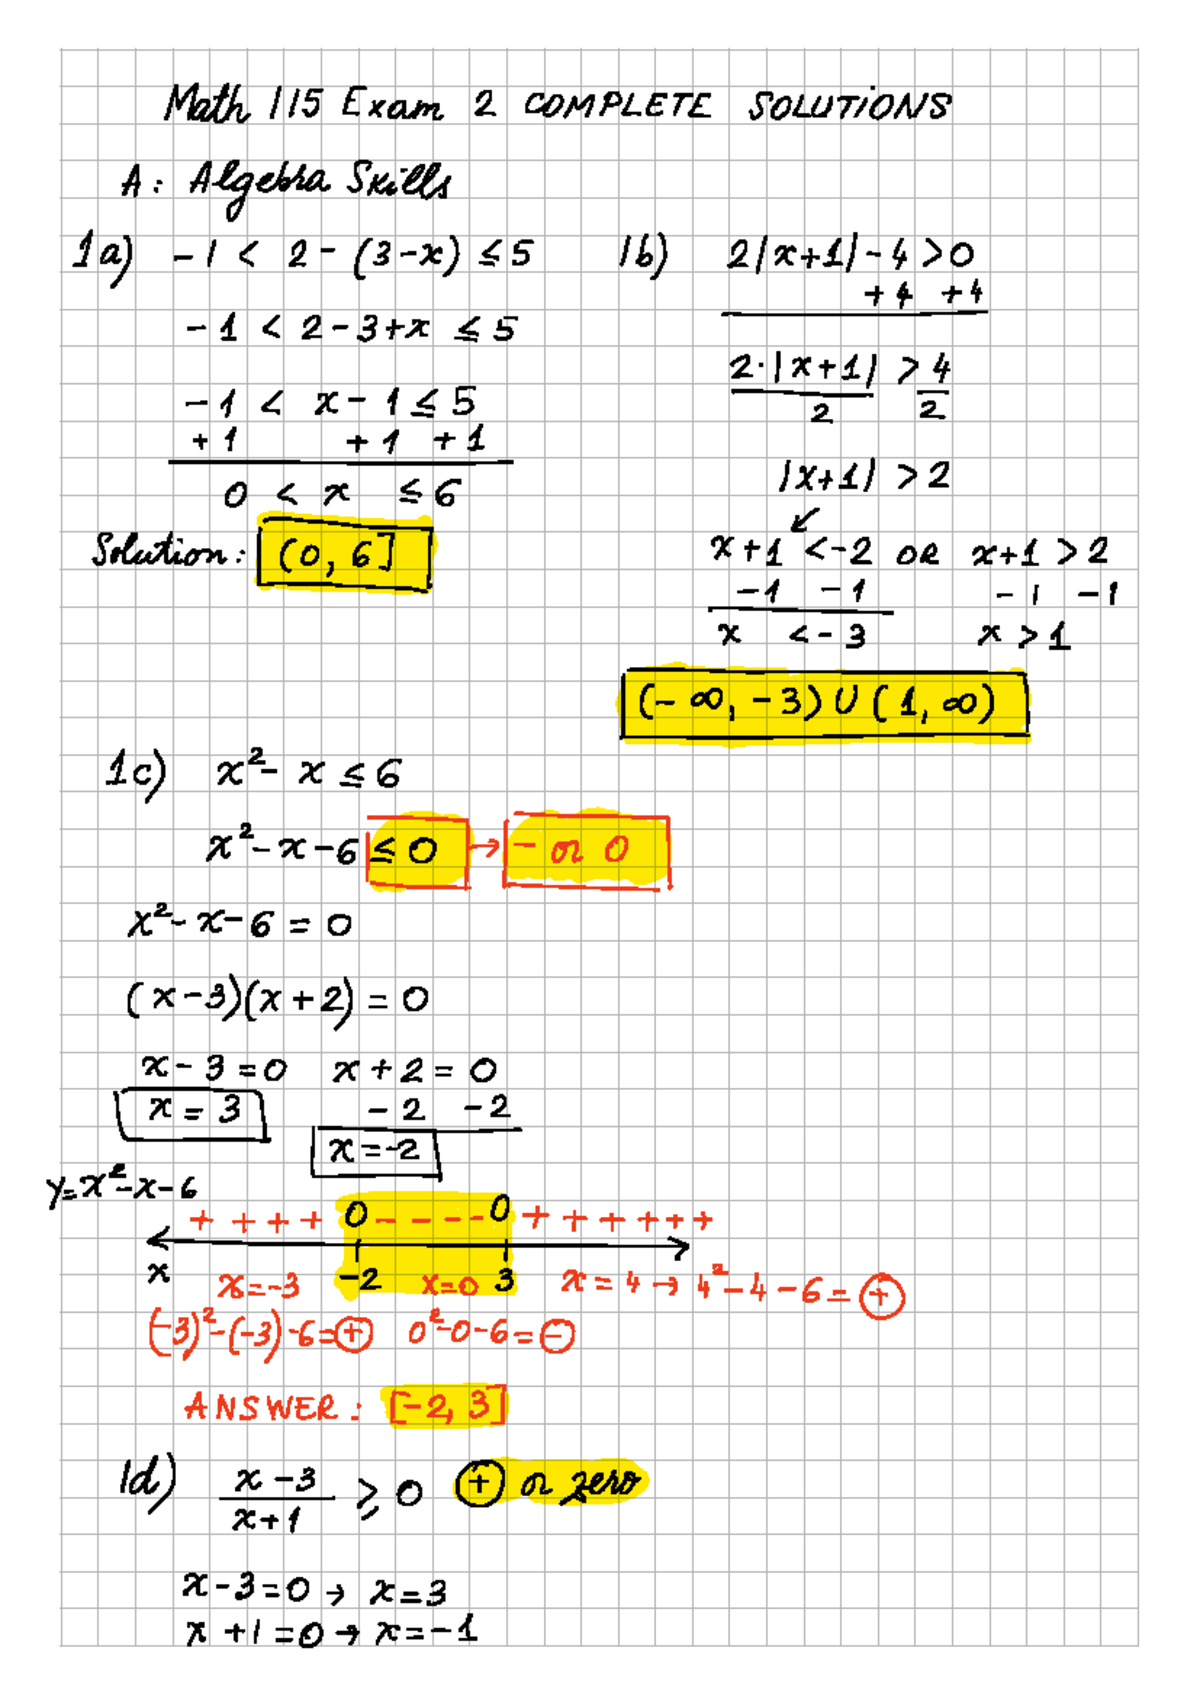 Math 115 Exam 2 COMPLETE SOLUTIONS
A: Algebra Skills
1a) -1 < 2 - (3-x) ≤ 5
-1 < 2-3+x ≤ 5
-1 < x-1 ≤ 5
+1 +1 +1
0 < x ≤ 6
Solution: (0, 6]
1b) 2|x+1|-4>0
+4 +4
2·|x+1| > 4
2 2
|x+1| > 2
↙
x+1 <-2 OR x+1 > 2
-1 -1 -1 -1
x <-3 x > 1
(-∞, -3) U (1, ∞)
1c) x²- x ≤ 6
x²-x-6 ≤ 0 → - or 0
x²-x-6 = 0
(x-3)(x+2) = 0
x-3=0 x+2=0
x = 3 -2 -2
x=-2
y=x²-x-6
+ + + + 0 - - - - 0 + + + + + +
x x=-3 -2 x=0 3 x=4 → 4²-4-6= +
(-3)²-(-3)-6=+ 0²-0-6=-
ANSWER: [-2, 3]
1d) x-3 ≥ 0 + or zero
x+1
x-3=0 → x=3
x+1=0 → x=-1